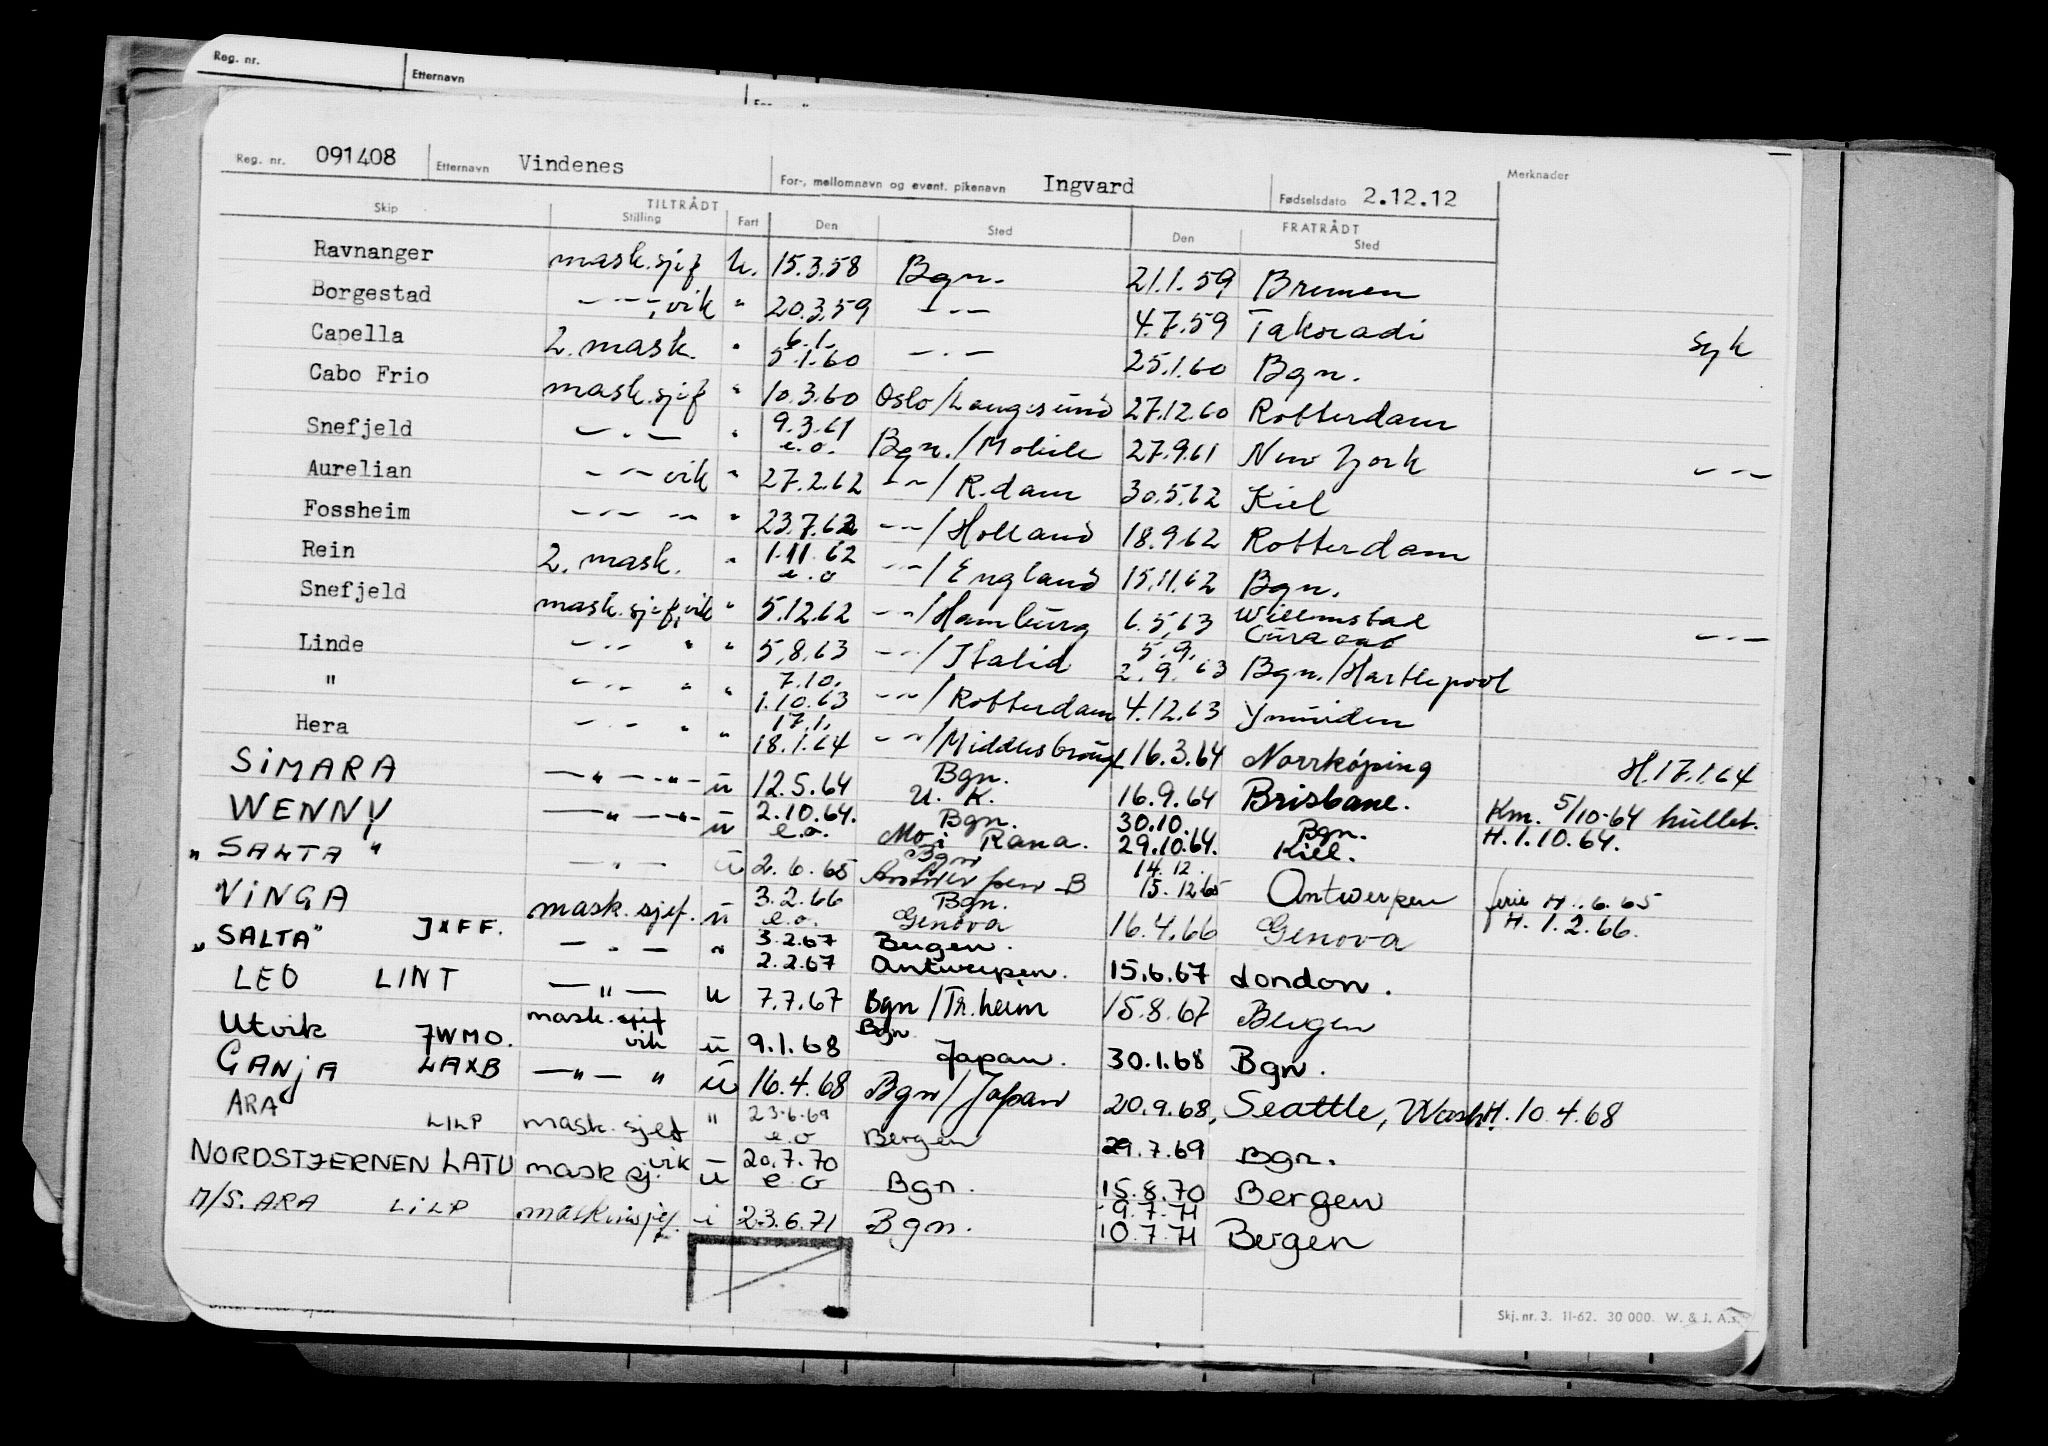 Reg. nr.
Etternavn
Reg. nr. 091408 Etternavn Vindenes For-, mellomnavn og event. pikenavn Ingvard Fødselsdato 2.12.12 Merknader
TILTRÅDT FRATRÅDT
Skip Stilling Fart Den Sted Den Sted
Ravnanger mask.sjef u. 15.3.58 Bgn. 21.1.59 Bremen
Borgestad — " —, vik " 20.3.59 — " — 4.7.59 Takoradi syk
Capella 2. mask. " 6.1. 5.1.60 — " — 25.1.60 Bgn.
Cabo Frio mask.sjef " 10.3.60 Oslo/Langesund 27.12.60 Rotterdam
Snefjeld — " — " 9.3.61 e.o. Bgn./Mobile 27.9.61 New York — " —
Aurelian — " — vik " 27.2.62 — " —/R.dam 30.5.62 Kiel
Fossheim — " — — " — " 23.7.62 — " —/Holland 18.9.62 Rotterdam
Rein 2. mask. " 1.11.62 e.o — " —/England 15.11.62 Bgn.
Snefjeld mask.sjef, vik " 5.12.62 — " —/Hamburg 6.5.63 Willemstad Curacao — " —
Linde — " — " " 5.8.63 — " —/Italid 5.9. 2.9.63 Bgn./Hartlepool
" — " — " " 7.10. 1.10.63 — " —/Rotterdam 4.12.63 Ymuiden
Hera — " — " " 17.1. 18.1.64 — " —/Middlesbrough 16.3.64 Norrköping H.17.1.64
SIMARA — " — " — u 12.5.64 Bgn. U.K. 16.9.64 Brisbane. Km. 5/10-64 hullet.
WENNY — " — " — u 2.10.64. e.o. Bgn. Mo i Rana. 30.10. 29.10.64. Bgn. Kiel. H.1.10.64.
"SALTA" — " — u 2.6.65 Bgn 14.12. 15.12.65 Antwerpen ferie H. .6.65
"VINGA mask.sjef. u 3.2.66 e.o. Bgn. Genova 16.4.66 Genova H.1.2.66.
"SALTA" JXFF. — " — " 3.2.67 2.2.67 Bergen. Antwerpen. 15.6.67 London.
LEO LINT — " — u 7.7.67 Bgn/Tr.heim 15.8.67 Bergen
Utvik JWMO. mask.sjef vik u 9.1.68 Bgn. Japan. 30.1.68 Bgn.
GANJA LAXB — " — " u 16.4.68 Bgn/Japan 20.9.68, Seattle, Wash. H.10.4.68
ARA LILP mask.sjef " 23.6.69 e.o Bergen 29.7.69 Bgn.
NORDSTJERNEN LATU mask sj. vik u 20.7.70 e.o Bgn. 15.8.70 Bergen
M/S. ARA LILP maskinsjef. i 23.6.71 Bgn. 9.7.71 10.7.71 Bergen
Skj. nr. 3. 11-62. 30 000. W. & J. A.s.